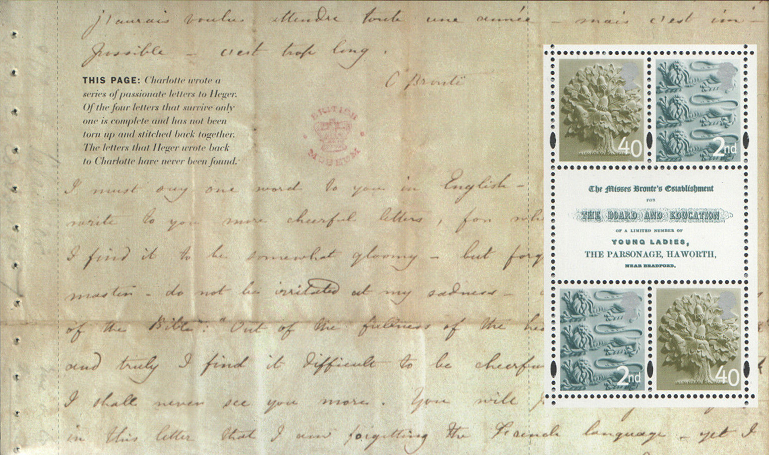 j'aurais voulu attendre toute une année - mais c'est im-
possible - c'est trop long.
C Brontë
THIS PAGE: Charlotte wrote a
series of passionate letters to Heger.
Of the four letters that survive only
one is complete and has not been
torn up and stitched back together.
The letters that Heger wrote back
to Charlotte have never been found.
BRITISH
MUSEUM
I must say one word to you in English -
write to you more cheerful letters, for
I find it to be somewhat gloomy - but
master - do not be irritated at my sadness -
of the Bible: "Out of the fullness of the
and truly I find it difficult to be
I shall never see you more. You will
in this letter that I am forgetting the French language - yet I
40
2nd
The Misses Bronte's Establishment
FOR
THE BOARD AND EDUCATION
OF A LIMITED NUMBER OF
YOUNG LADIES,
THE PARSONAGE, HAWORTH,
NEAR BRADFORD.
2nd
40